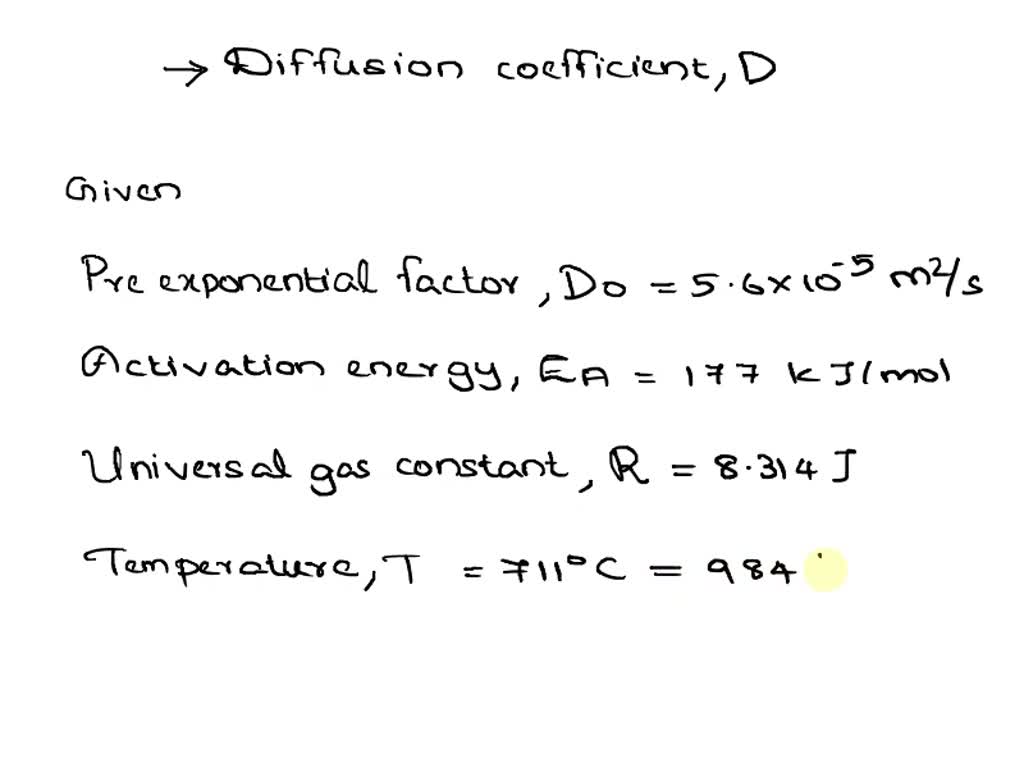 → Diffusion coefficient, D
Given
Pre exponential factor, D0 = 5.6×10⁻⁵ m²/s
Activation energy, EA = 177 kJ/mol
Universal gas constant, R = 8.314 J
Temperature, T = 711°C = 984